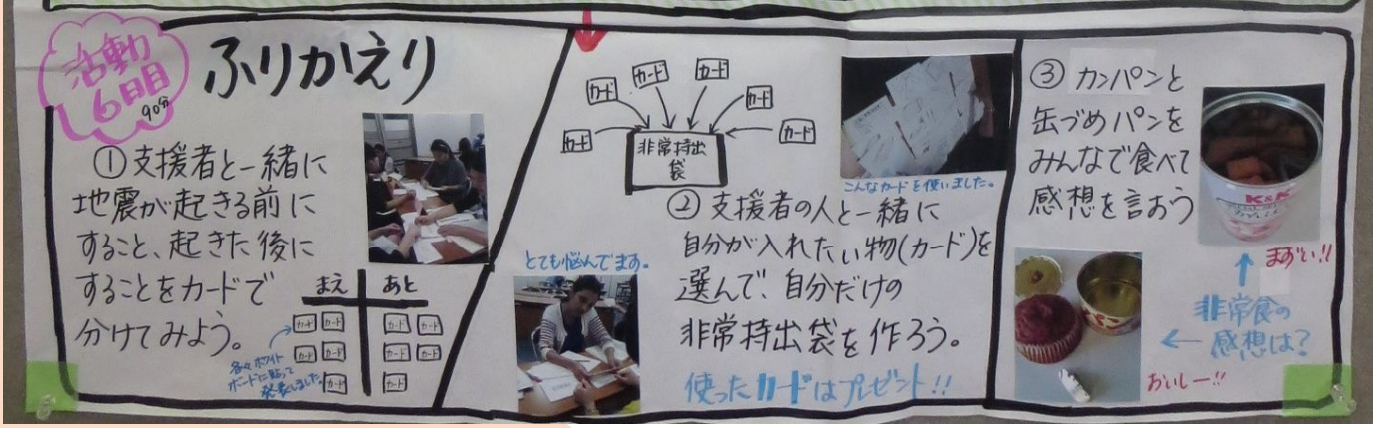 活動
6日目
90分
ふりかえり
①支援者と一緒に
地震が起きる前に
すること、起きた後に
することをカードで
分けてみよう。
まえ あと
カード カード カード カード
カード カード カード カード
カード カード
各々ホワイト
ボードに貼って
発表しました。
カード カード カード カード カード カード
非常持出
袋
こんなカードを使いました。
②支援者の人と一緒に
自分が入れたい物(カード)を
選んで、自分だけの
非常持出袋を作ろう。
使ったカードはプレゼント!!
とても悩んでます。
③カンパンと
缶づめパンを
みんなで食べて
感想を言おう
K&K
カンパン
まずい!!
↑
非常食の
← 感想は?
パン
おいしー!!